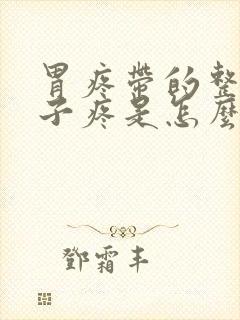 胃疼带的整
子疼是怎麼
鄧霜丰